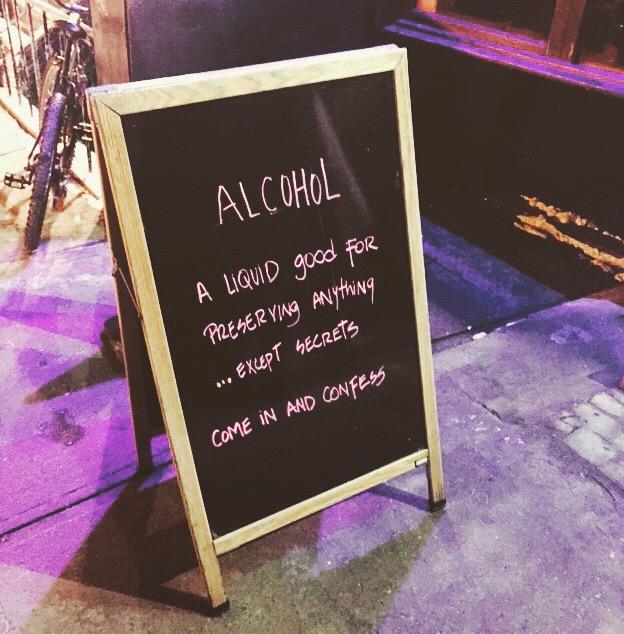 ALCOHOL
A LIQUID good FOR
PRESERVING ANYthiNg
... EXCEPT SECRETS
COME IN AND CONFESS